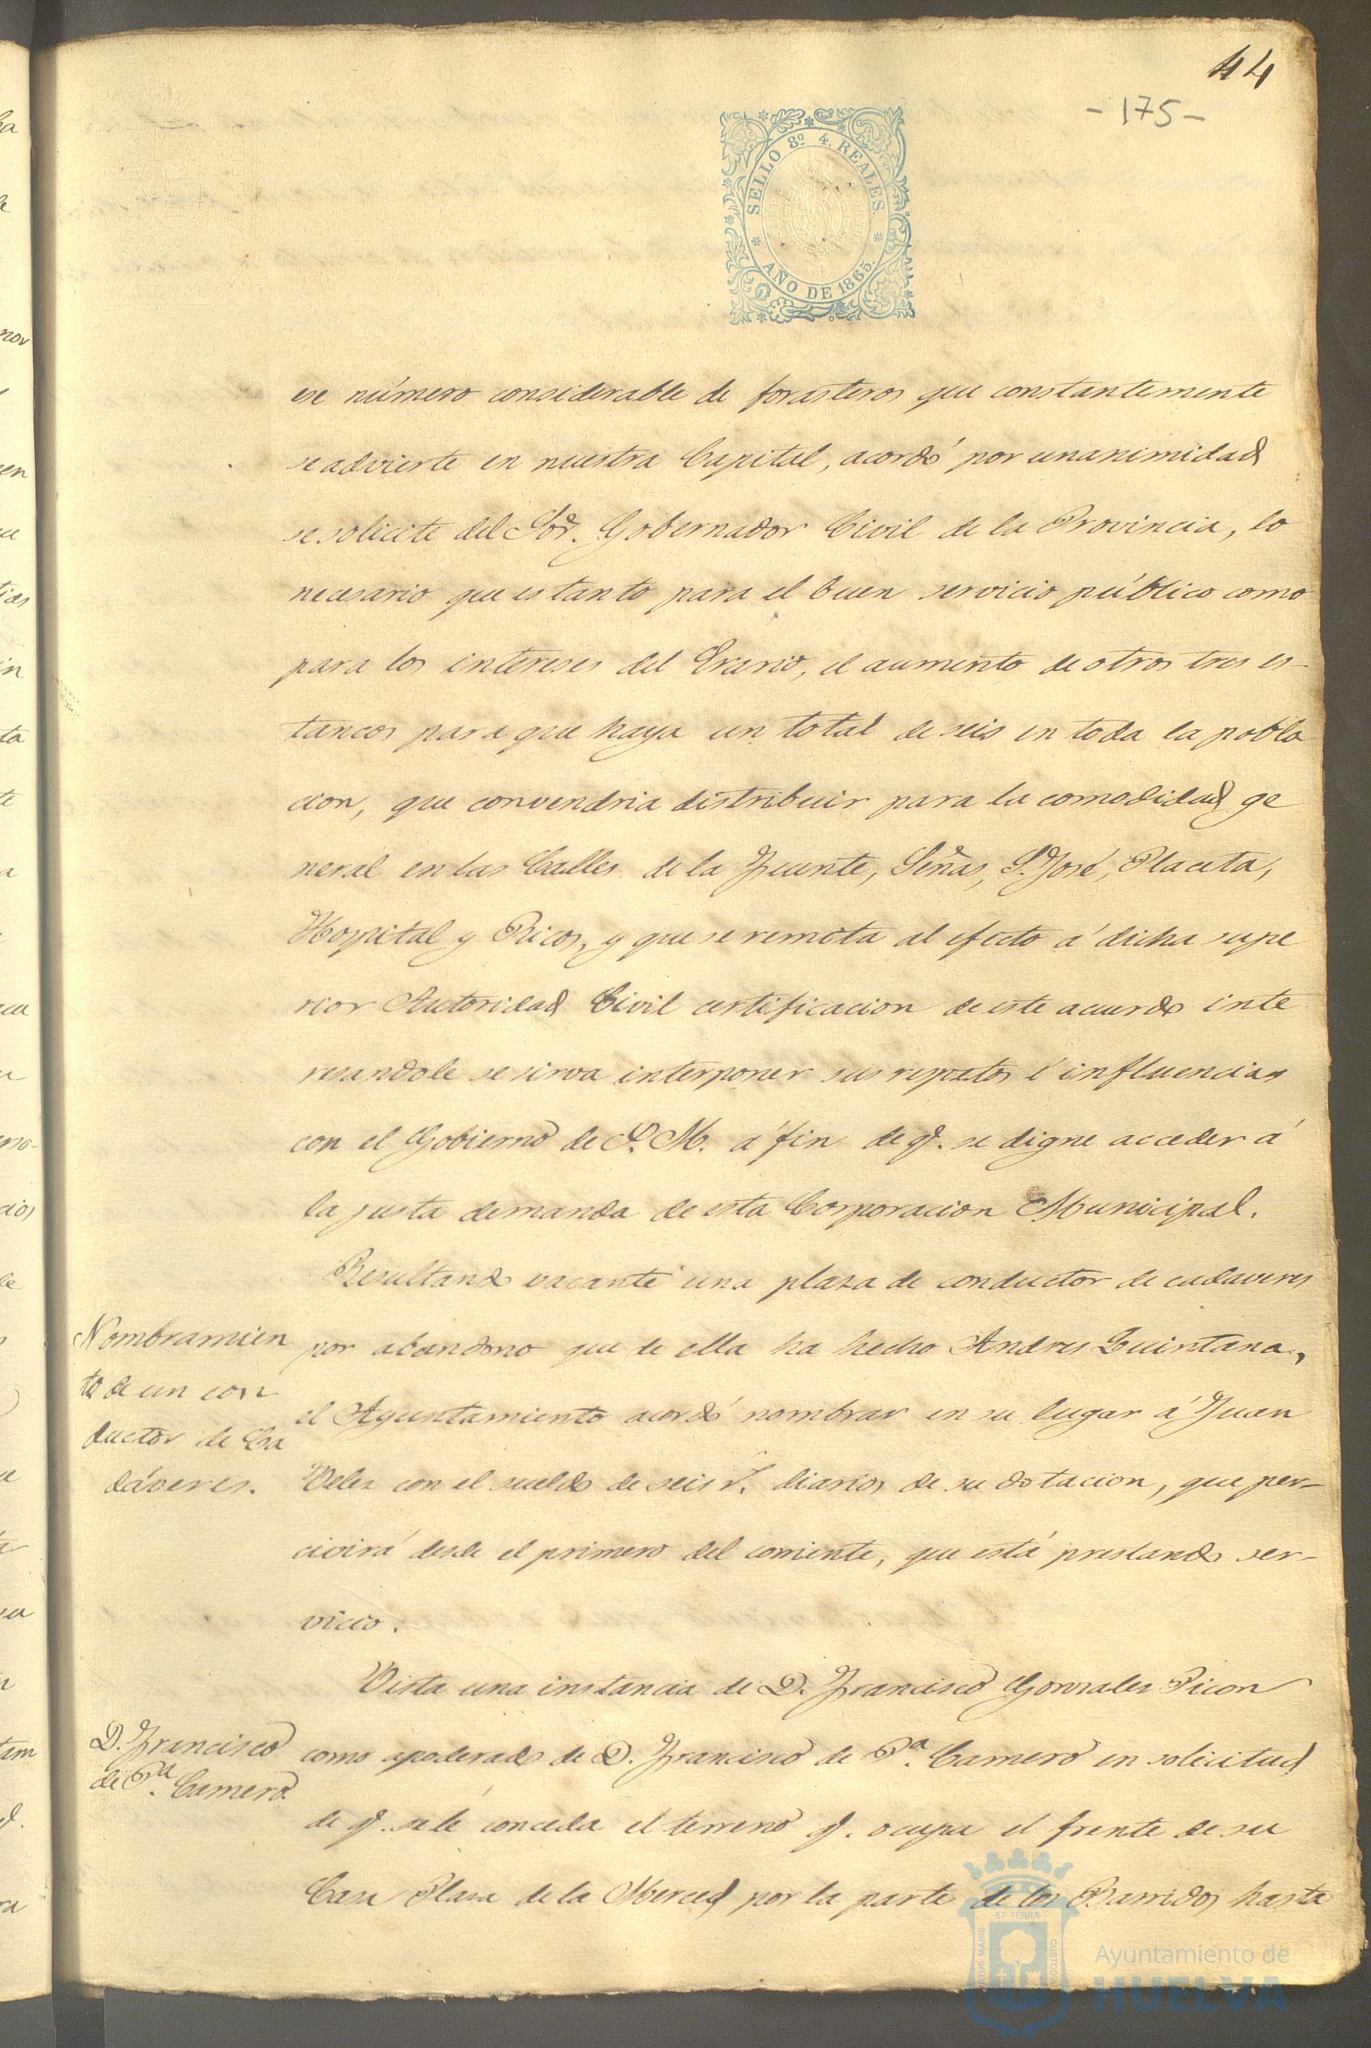 44
-175-
SELLO 8º 4. REALES.
AÑO DE 1865.
ese número considerable de forasteros que constantemente
se advierte en nuestra Capital, acordó por unanimidad
se solicite del Sor. Gobernador Civil de la Provincia, lo
necesario que es tanto para el buen servicio público como
para los intereses del Erario, el aumento de otros tres es-
tancos para que haya un total de seis en toda la pobla
cion, que convendria distribuir para la comodidad ge
neral en las Calles de la Fuente, Señas, S. José, Placeta,
Hospital y Ricos, y que se remita al efecto á dicha supe
rior Autoridad Civil certificacion de este acuerdo inte
resandole se sirva interponer sus respetos é influencias
con el Gobierno de S. M. á fin de q. se digne acceder á
la justa demanda de esta Corporacion Municipal.
Resultando vacante una plaza de conductor de cadaveres
Nombramien
to de un con
ductor de Ca
dáveres.
por abandono que de ella ha hecho Andres Quintana,
el Ayuntamiento acordó nombrar en su lugar á Juan
Velez con el sueldo de seis r. diarios de su dotacion, que per-
civirá desde el primero del corriente, que está prestando ser-
vicio.
Vista una instancia de D. Francisco Gonzalez Picon
D. Francisco
de Pa. Camero.
como apoderado de D. Francisco de Pa. Camero en solicitud
de q. se le conceda el terreno q. ocupa el frente de su
Casa Plaza de la Merced por la parte de los Barridos hasta
Ayuntamiento de
HUELVA